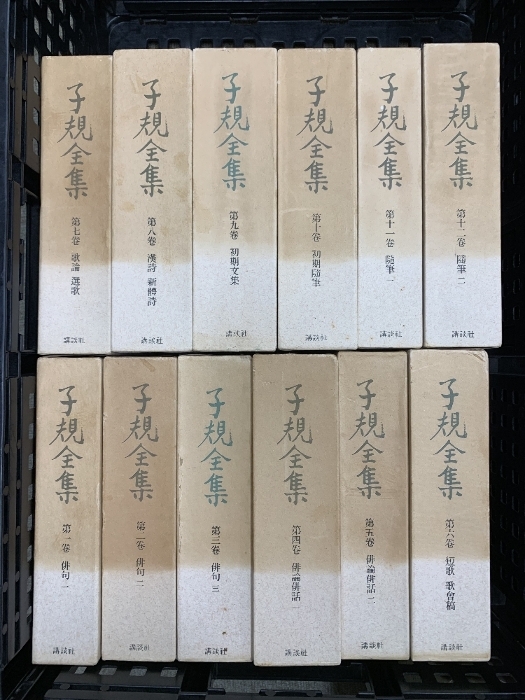 子規全集 第七卷 歌論 選歌 講談社
子規全集 第八卷 漢詩 新體詩 講談社
子規全集 第九卷 初期文集 講談社
子規全集 第十卷 初期隨筆 講談社
子規全集 第十一卷 隨筆一 講談社
子規全集 第十二卷 隨筆二 講談社
子規全集 第一卷 俳句一 講談社
子規全集 第二卷 俳句二 講談社
子規全集 第三卷 俳句三 講談社
子規全集 第四卷 俳論俳話一 講談社
子規全集 第五卷 俳論俳話二 講談社
子規全集 第六卷 短歌 歌會稿 講談社